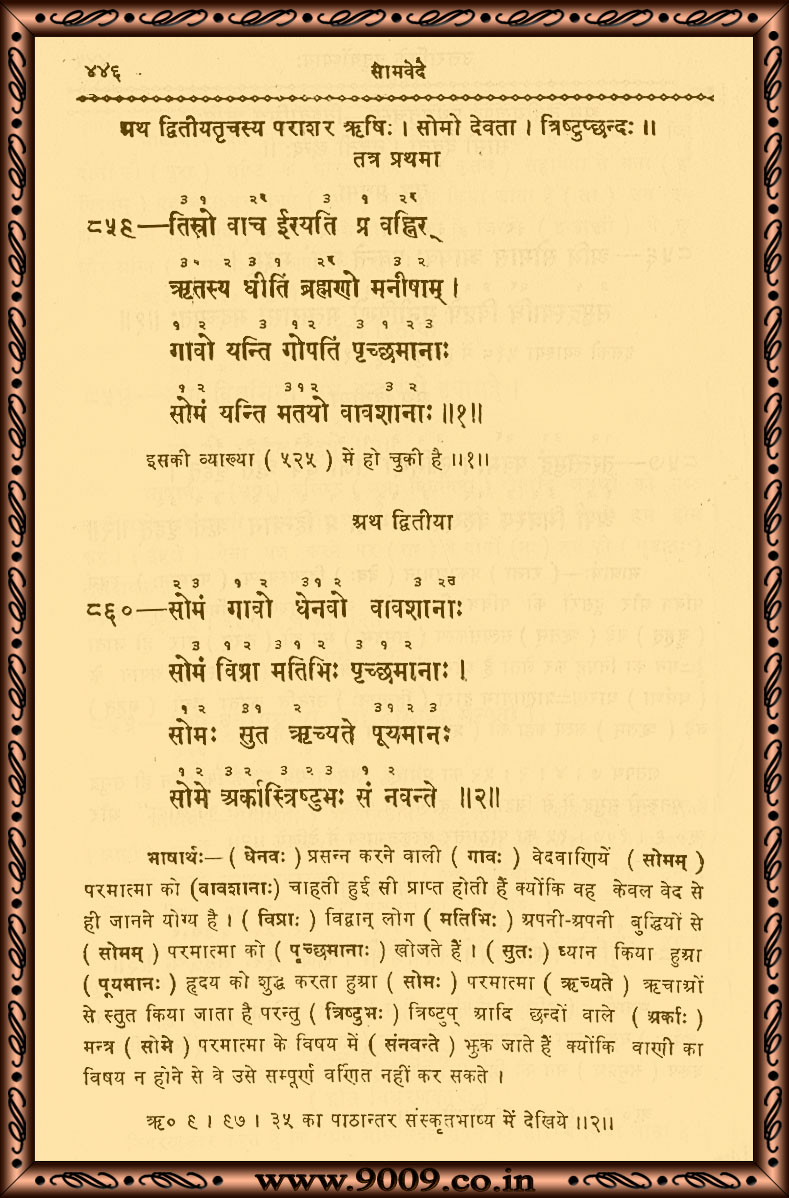 ४४६ सामवेदे
अथ द्वितीयतृचस्य पराशर ऋषिः । सोमो देवता । त्रिष्टुप्छन्दः ॥
तत्र प्रथमा
३ १ २र ३ १ २र
८५९—तिस्रो वाच ईरयति प्र वह्निर्
३१ २ ३ १ २र ३ २
ऋतस्य धीतिं ब्रह्मणो मनीषाम् ।
१ २ ३ १ २ ३ १ २ ३
गावो यन्ति गोपतिं पृच्छमानाः
१ २ ३१२ ३ २
सोमं यन्ति मतयो वावशानाः ॥१॥
इसकी व्याख्या ( ५२५ ) में हो चुकी है ॥१॥
अथ द्वितीया
२ ३ १ २ ३१ २ ३ २उ
८६०—सोमं गावो धेनवो वावशानाः
३ १ २ ३ १ २ ३ १ २
सोमं विप्रा मतिभिः पृच्छमानाः ।
१ २ ३१ २ ३१ २ ३
सोमः सुत ऋच्यते पूयमानः
१ २ ३ २ ३ २ ३ १ २
सोमे अर्कास्त्रिष्टुभः सं नवन्ते ॥२॥
भाषार्थः—( धेनवः ) प्रसन्न करने वाली ( गावः ) वेदवाणियें ( सोमम् )
परमात्मा को (वावशानाः) चाहती हुई सी प्राप्त होती हैं क्योंकि वह केवल वेद से
ही जानने योग्य है । ( विप्राः ) विद्वान् लोग ( मतिभिः ) अपनी-अपनी बुद्धियों से
( सोमम् ) परमात्मा को ( पृच्छमानाः ) खोजते हैं । ( सुतः ) ध्यान किया हुआ
( पूयमानः ) हृदय को शुद्ध करता हुआ ( सोमः ) परमात्मा ( ऋच्यते ) ऋचाओं
से स्तुत किया जाता है परन्तु ( त्रिष्टुभः ) त्रिष्टुप् आदि छन्दों वाले ( अर्काः )
मन्त्र ( सोमे ) परमात्मा के विषय में ( संनवन्ते ) झुक जाते हैं क्योंकि वाणी का
विषय न होने से वे उसे सम्पूर्ण वर्णित नहीं कर सकते ।
ऋ० ९ । ९७ । ३५ का पाठान्तर संस्कृतभाष्य में देखिये ॥२॥
www.9009.co.in